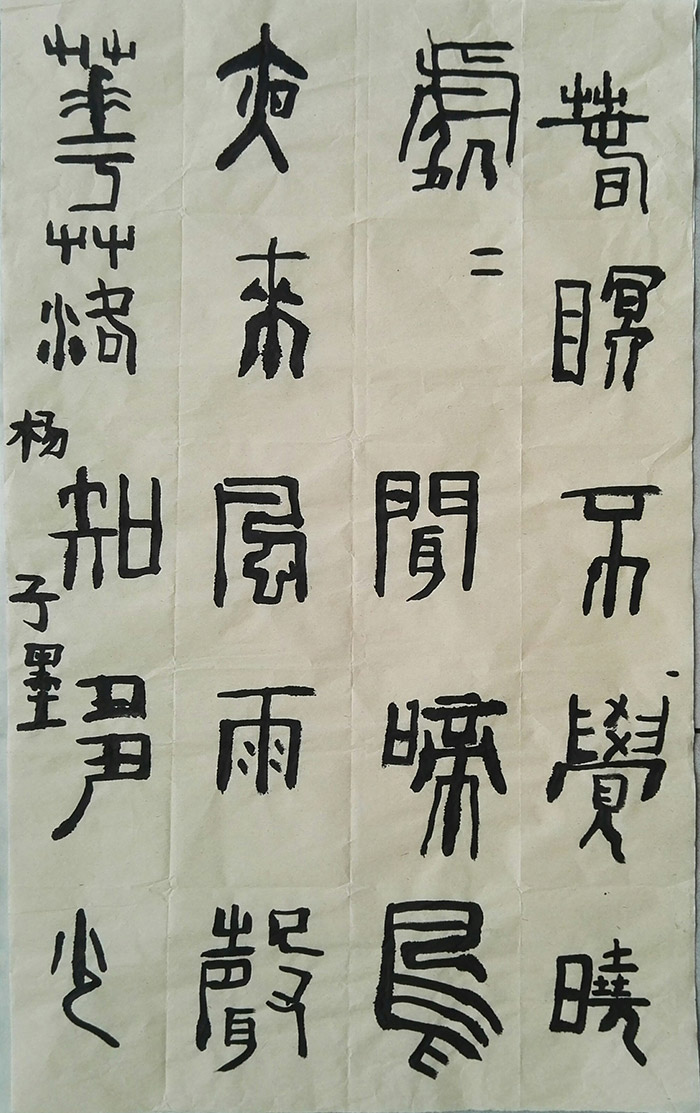 春瞑不覺曉
處〻聞啼鳥
夜來風雨聲
華落知多少
杨子墨